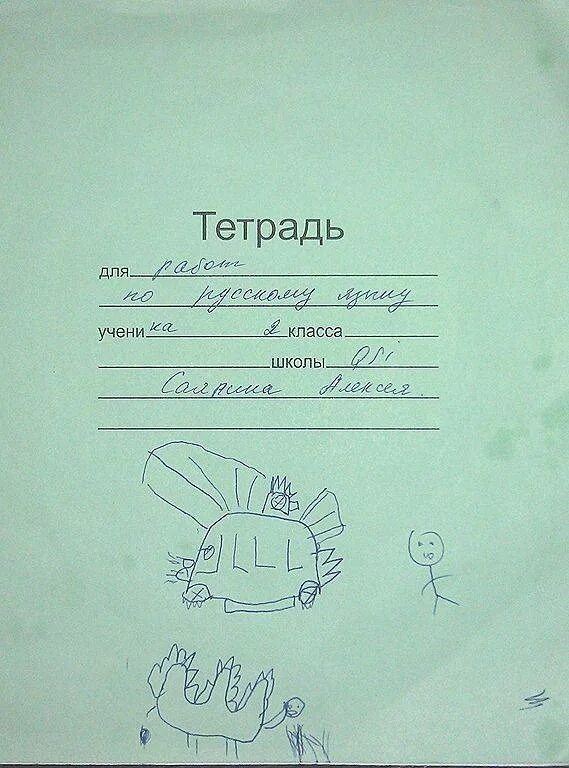 Тетрадь
для работ
по русскому языку
ученика 2 класса
школы QSi
Салянина Алексея.